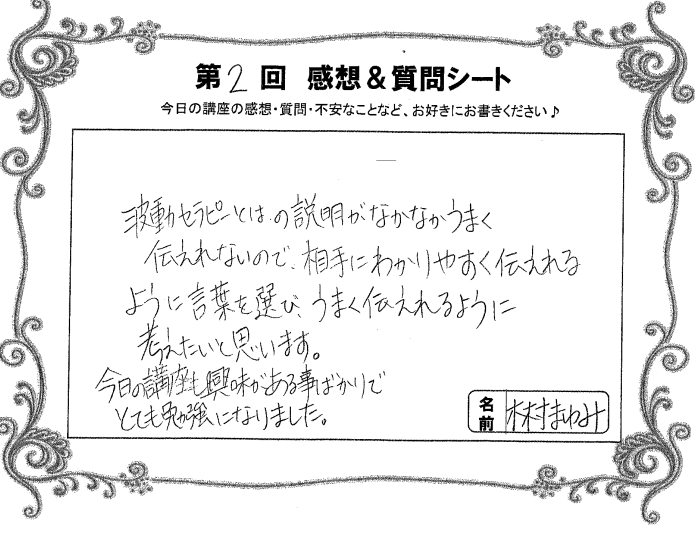 第2回 感想&質問シート
今日の講座の感想・質問・不安なことなど、お好きにお書きください♪
波動セラピーとは の説明がなかなかうまく
伝えれないので、相手にわかりやすく伝えれる
ように言葉を選び、うまく伝えれるように
考えたいと思います。
今日の講座も興味がある事ばかりで
とても勉強になりました。
名前
村まゆみ